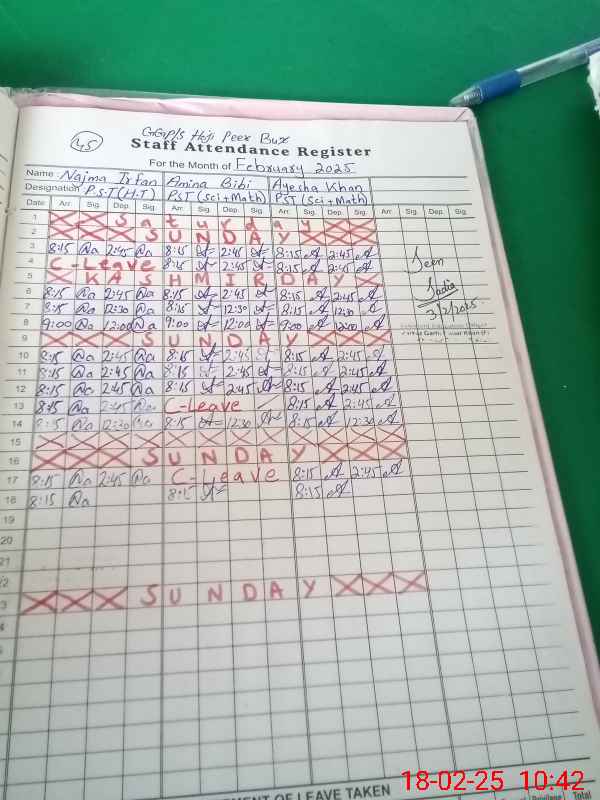 45
GGPS Haji Peer Bux
Staff Attendance Register
For the Month of February 2025
Name: Najma Irfan Amina Bibi Ayesha Khan
Designation P.S.T(H.T) PST(Sci+Math) PST(Sci+Math)
Date Arr. Sig. Dep. Sig. Arr. Sig. Dep. Sig. Arr. Sig. Dep. Sig. Arr. Sig. Dep. Sig.
1 Saturday
2 SUNDAY
3 8:15 Na 2:45 Na 8:15 2:45 8:15 A 2:45 A
4 C-Leave 8:15 2:45 8:15 A 2:45 A
5 KASHMIR DAY
6 8:15 Na 2:45 Na 8:15 2:45 8:15 A 2:45 A
7 8:15 Na 12:30 Na 8:15 12:30 8:15 A 12:30 A
8 9:00 Na 12:00 Na 9:00 12:00 9:00 A 12:00 A
9 SUNDAY
10 8:15 Na 2:45 Na 8:15 2:45 8:15 A 2:45 A
11 8:15 Na 2:45 Na 8:15 2:45 8:15 A 2:45 A
12 8:15 Na 2:45 Na 8:15 2:45 8:15 A 2:45 A
13 8:15 Na 2:45 Na C-Leave 8:15 A 2:45 A
14 8:15 Na 12:30 Na 8:15 12:30 8:15 A 12:30 A
15
16 SUNDAY
17 8:15 Na 2:45 Na C-Leave 8:15 A 2:45 A
18 8:15 Na 8:15 8:15 A
19
20
21
22
SUNDAY
Seen
Sadia
3/2/2025
OF LEAVE TAKEN
Total
18-02-25 10:42